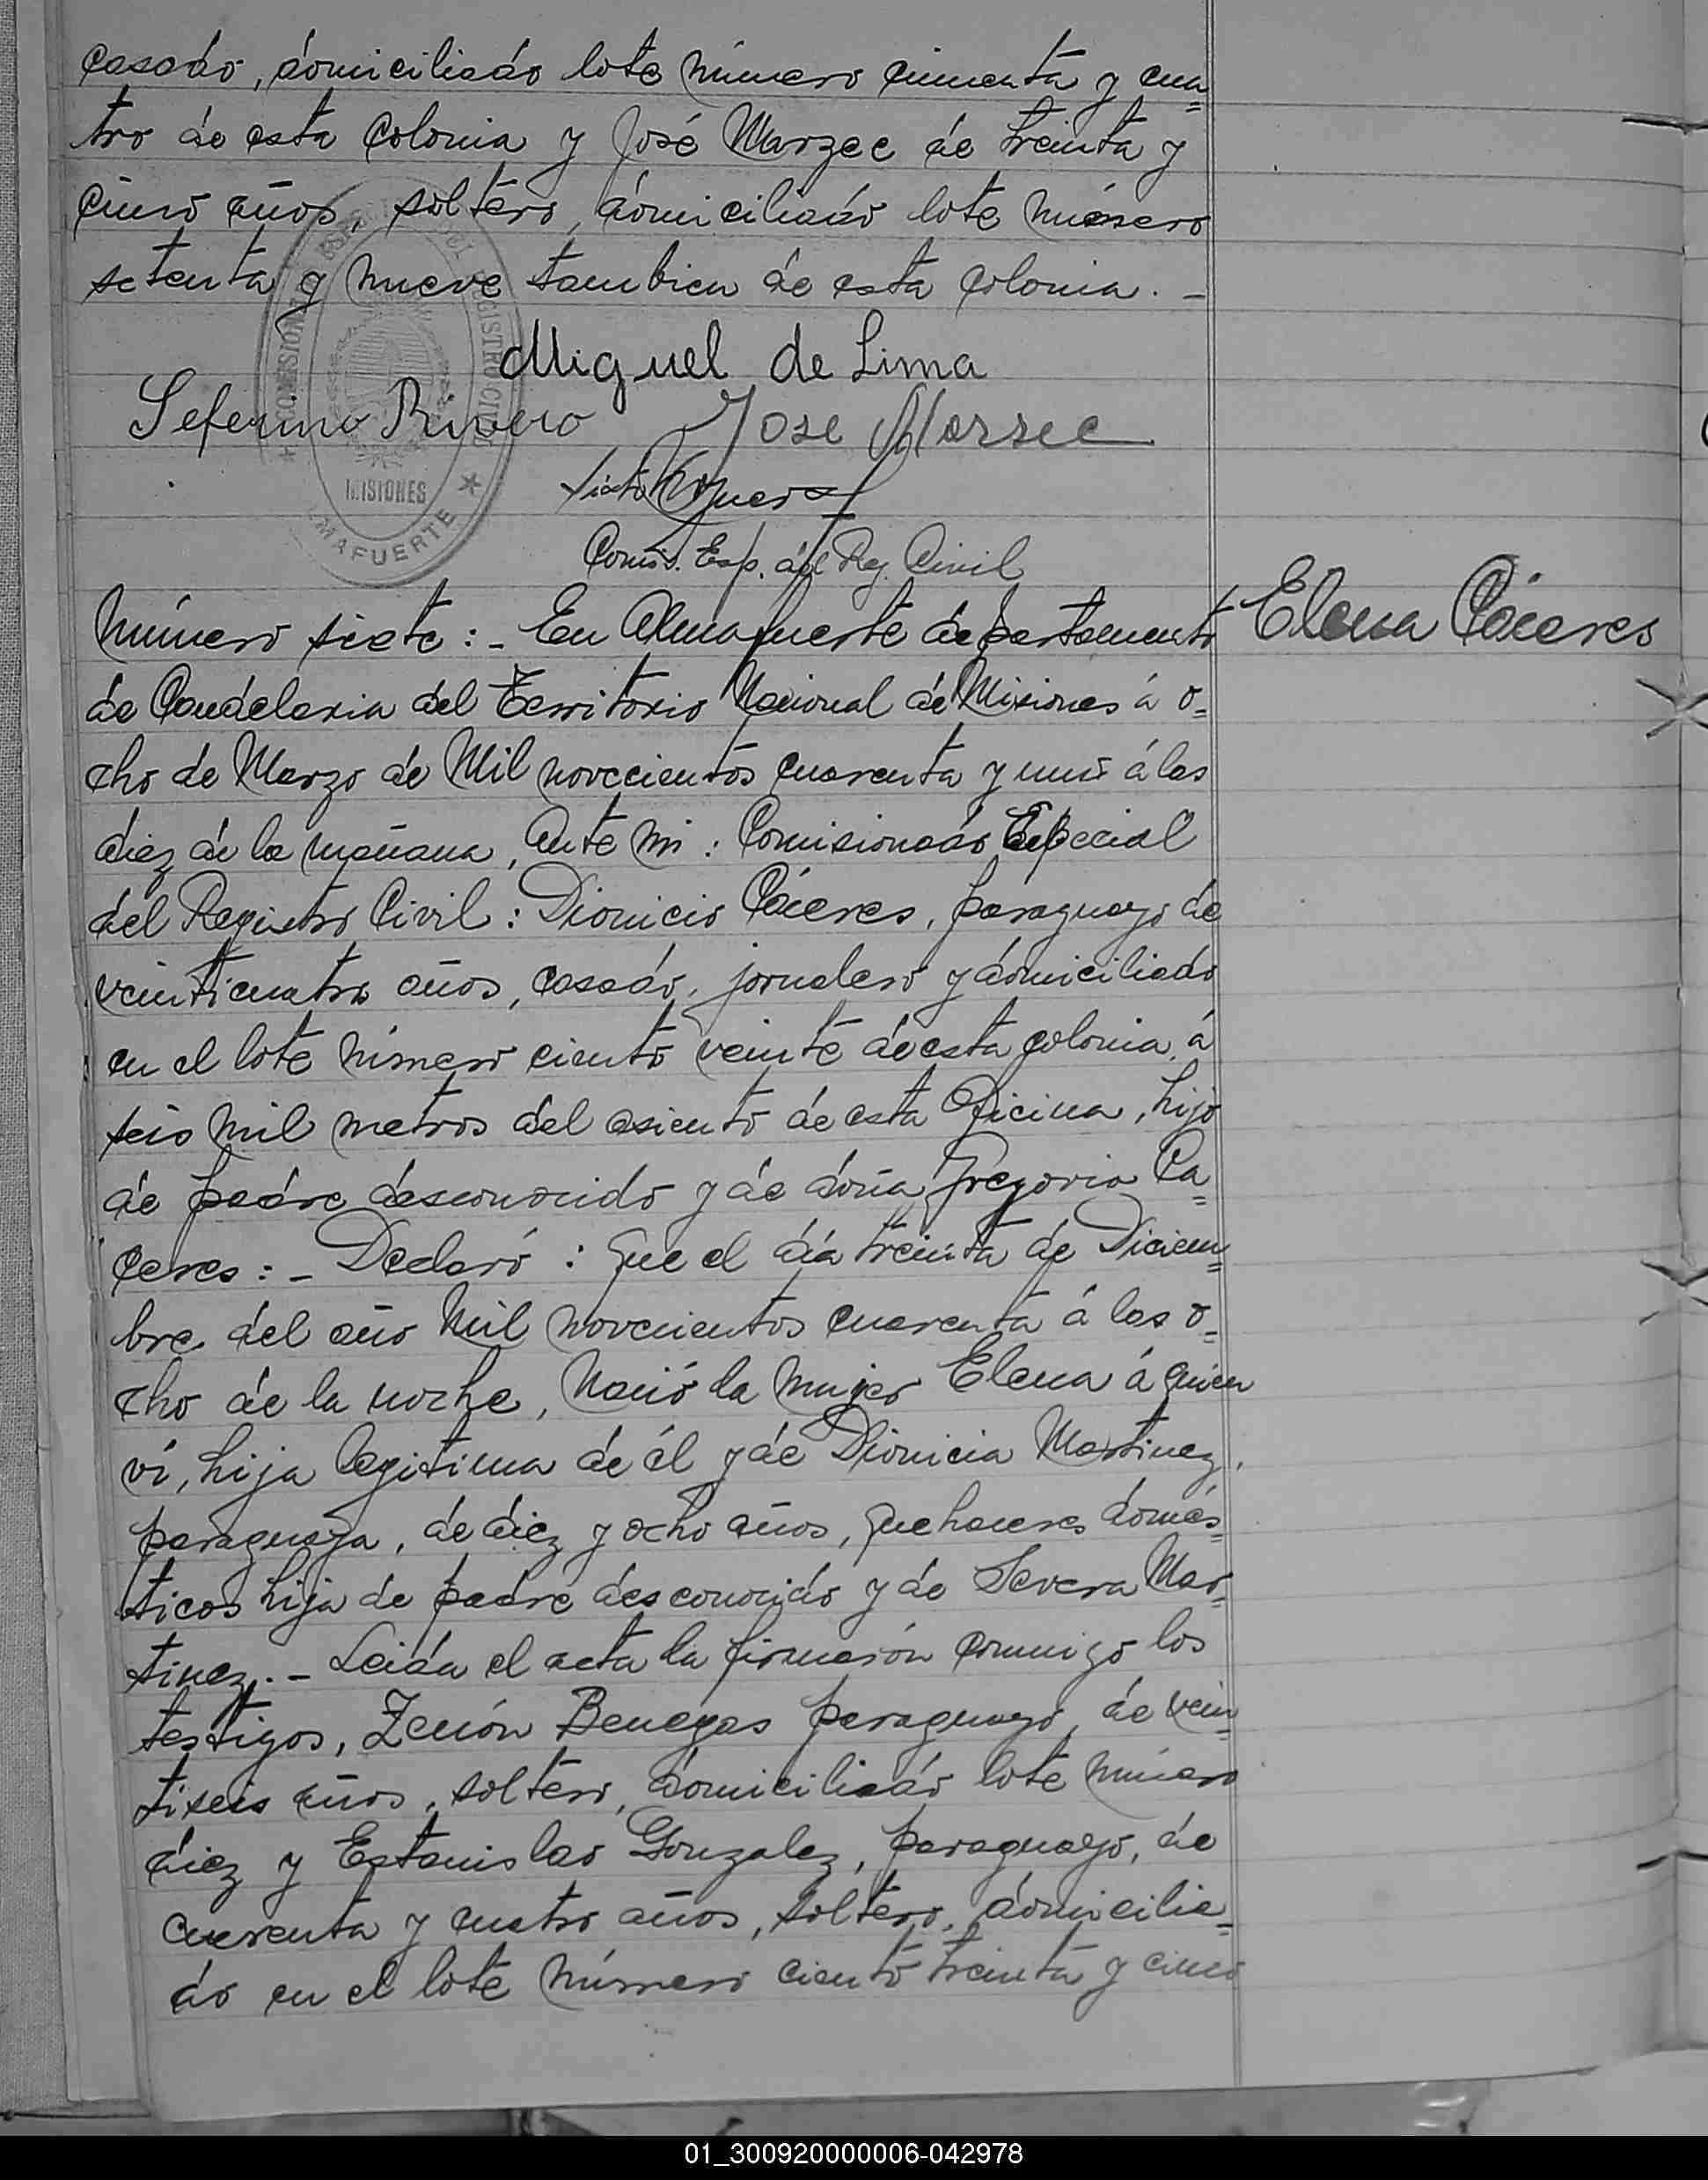 casado, domiciliado lote número cincuenta y cua=
tro de esta Colonia y José Marzec de treinta y
cinco años, soltero, domiciliado lote número
setenta y nueve tambien de esta colonia. -
Miguel de Lima
Seferino Rivero Jose Marsec
Comis. Esp. del Reg. Civil
COMISIONADO ESPECIAL DEL REGISTRO CIVIL
MISIONES
ALMAFUERTE
Número siete: - En Almafuerte departamento
Elena Cáceres
de Candelaria del Territorio Nacional de Misiones á o=
cho de Marzo de Mil novecientos cuarenta y uno á las
diez de la mañana, Ante mi: Comisionado Especial
del Registro Civil: Dionicio Cáceres, paraguayo de
veinticuatro años, casado, jornalero y domiciliado
en el lote número ciento veinte de esta colonia, á
seis mil metros del asiento de esta Oficina, hijo
de padre desconocido y de doña Gregoria Ca=
ceres: - Declaró: Que el día treinta de Diciem=
bre del año Mil novecientos cuarenta á las o=
cho de la noche, Nació la mujer Elena á quien
ví, hija legitima de él y de Dionicia Martinez,
paraguaya, de diez y ocho años, quehaceres domés=
ticos hija de padre desconocido y de Severa Mar=
tinez. - Leida el acta la firmarón conmigo los
testigos, Zenón Benegas paraguayo, de vein=
tiseis años, soltero, domiciliado lote número
diez y Estanislao Gonzalez, paraguayo, de
cuarenta y cuatro años, soltero, domicilia=
do en el lote número ciento treinta y cinco
01_300920000006-042978